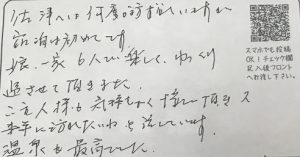 佐津へは何度も訪れていますが
宿泊は初めてです
娘一家6人で楽しく、ゆっくり
過させて頂きました。
ご主人様も気持ちよく接して頂き又
来年に訪れたいねと話しています。
温泉も最高でした。
スマホでも投稿
OK！チェック欄
記入後フロント
へお渡し下さい。